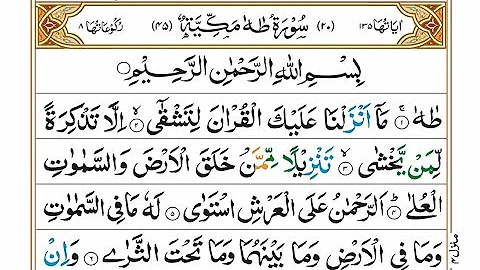 اٰیاتها ۱۳۵ (۲۰) سُوْرَةُ طٰهٰ مَكِّيَّةٌ (۴۵) رکوعاتها ۸
بِسْمِ اللّٰهِ الرَّحْمٰنِ الرَّحِیْمِ
طٰهٰ ۚ﴿۱﴾ مَاۤ اَنْزَلْنَا عَلَیْكَ الْقُرْاٰنَ لِتَشْقٰۤی ۙ﴿۲﴾ اِلَّا تَذْكِرَةً
لِّمَنْ یَّخْشٰی ۙ﴿۳﴾ تَنْزِیْلًا مِّمَّنْ خَلَقَ الْاَرْضَ وَالسَّمٰوٰتِ
الْعُلٰی ؕ﴿۴﴾ اَلرَّحْمٰنُ عَلَی الْعَرْشِ اسْتَوٰی ﴿۵﴾ لَهٗ مَا فِی السَّمٰوٰتِ
وَمَا فِی الْاَرْضِ وَمَا بَیْنَهُمَا وَمَا تَحْتَ الثَّرٰی ﴿۶﴾ وَاِنْ
منزل ۴